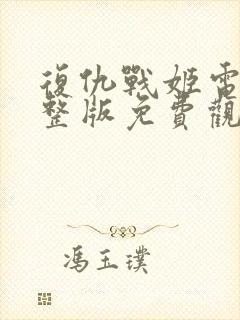 復仇戰姬電
整版免費觀
馮玉璞